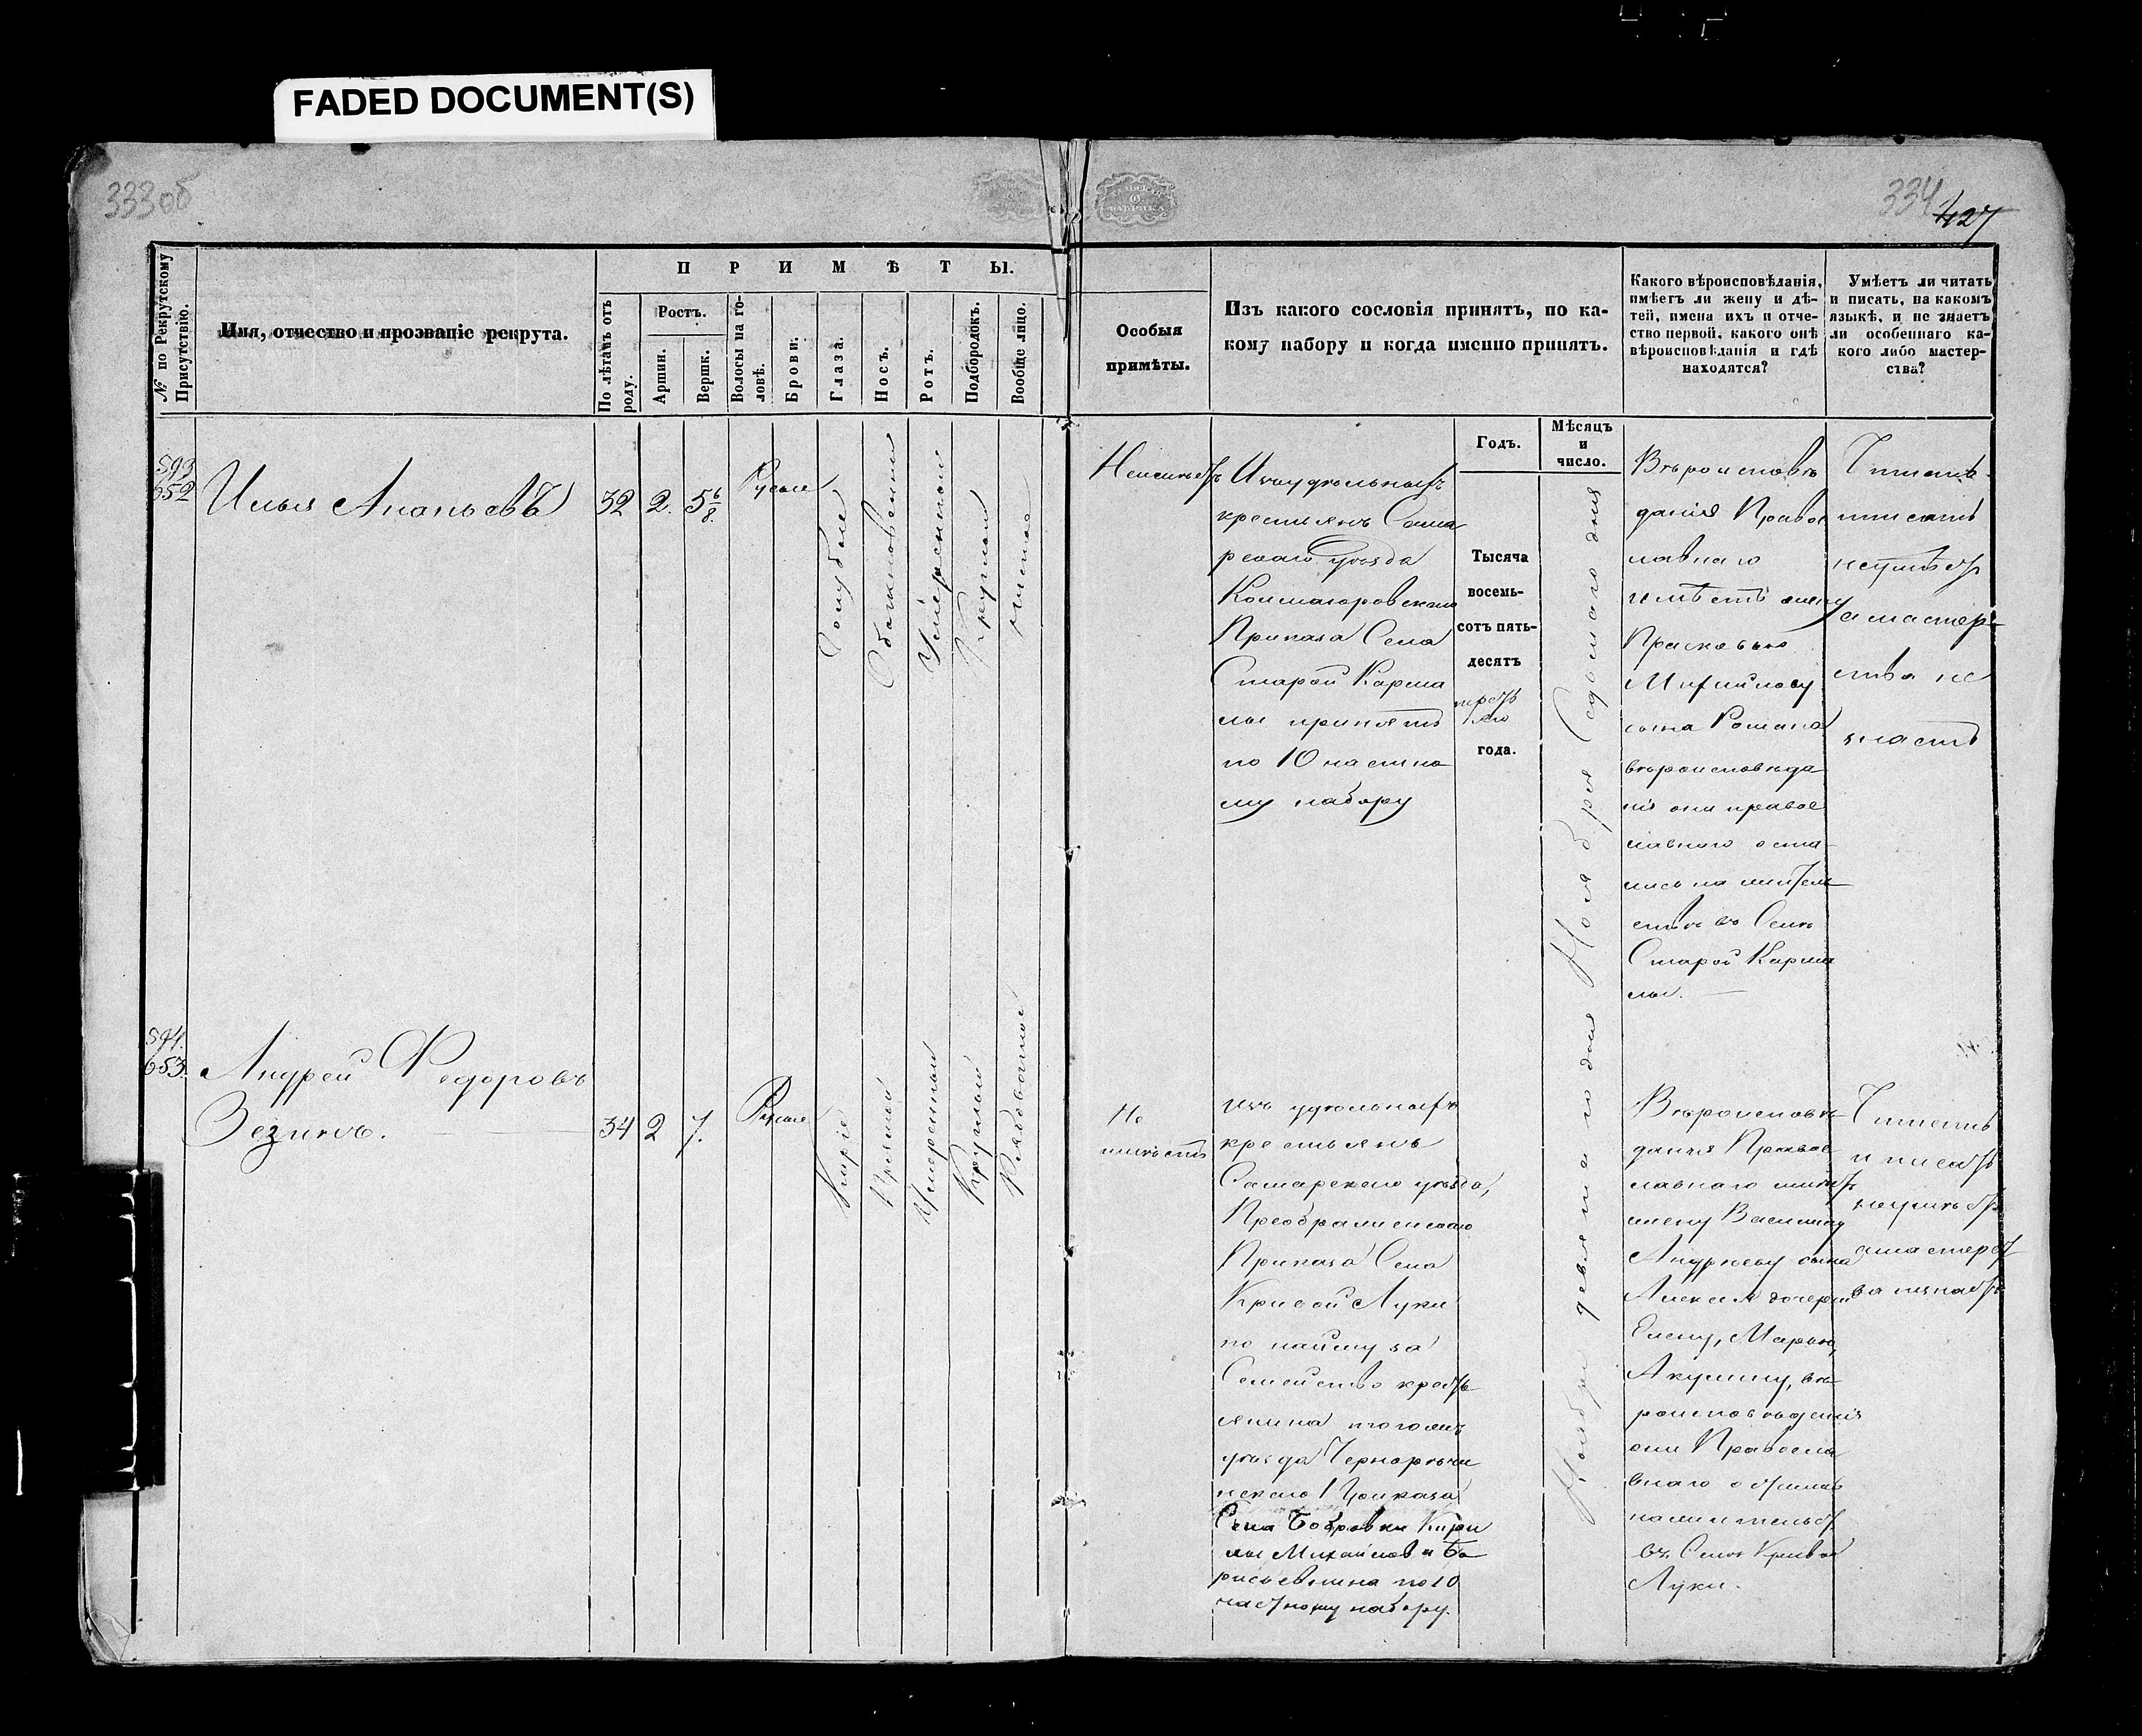 FADED DOCUMENT(S)
333об
334
427
№ по Рекрутскому Присутствію.
Имя, отчество и прозваніе рекрута.
ПРИМѢТЫ.
По лѣтамъ отъ роду.
Ростъ.
Аршин.
Вершк.
Волосы на головѣ.
Брови.
Глаза.
Носъ.
Ротъ.
Подбородокъ.
Вообще лицо.
Особыя
примѣты.
Изъ какого сословія принятъ, по ка-
кому набору и когда именно принятъ.
Какого вѣроисповѣданія,
имѣетъ ли жену и дѣ-
тей, имена ихъ и отче-
ство первой, какого онѣ
вѣроисповѣданія и гдѣ
находятся?
Умѣетъ ли читать
и писать, на какомъ
языкѣ, и не знаетъ
ли особеннаго ка-
кого либо мастер-
ства?
Годъ.
Мѣсяцъ
и
число.
593
652
Илья Ананьевъ
32
2.
5 6/8.
Русые
Голубые
Обыкновенный
Умеренный
Круглый
Чистое
Неимѣетъ
Изъ удѣльныхъ
крестьянъ Сама
рскаго уѣзда
Приказа Села
Старой Карма
лы принятъ
по 10 частно
му набору
Тысяча
восемь-
сотъ пять-
десятъ
третьяго
года.
Ноября Седьмаго дня
Вѣроисповѣ
данія Правос
лавнаго
имѣетъ жену
Прасковью
сына Романа
вѣроисповѣда
нія они правос
лавнаго оста
лись на житель
ствѣ въ Селѣ
Старой Карма
лы.
Читать
писать
неумѣетъ
а мастер-
ства не
знаетъ
594.
653.
Андрей Федоровъ
Зезинъ.
34
2
7.
Русые
Карие
Прямый
Умеренный
Круглый
Рябоватое
Не
имѣетъ
изъ удѣльныхъ
крестьянъ
Самарскаго уѣзда,
Преображенскаго
Приказа Села
Кривой Луки
по найму за
Семейство кресть
янина тогожъ
уѣзда Чернорѣчи
нскаго Приказа
Села Бобровки Кири
лы Михайлова Бо
по 10
частному набору.
Ноября девятаго дня
Вѣроисповѣ
данія Правос
лавнаго имѣетъ
жену Василису
Андрееву сына
Алексея дочерей
Елену, Марью,
Акулину, вѣ
роисповѣданія
они Правосла
внаго остались
на жительст
въ Селѣ Кривой
Луки.
Читать
и писать
неумѣетъ
а мастерст
ва незнаетъ